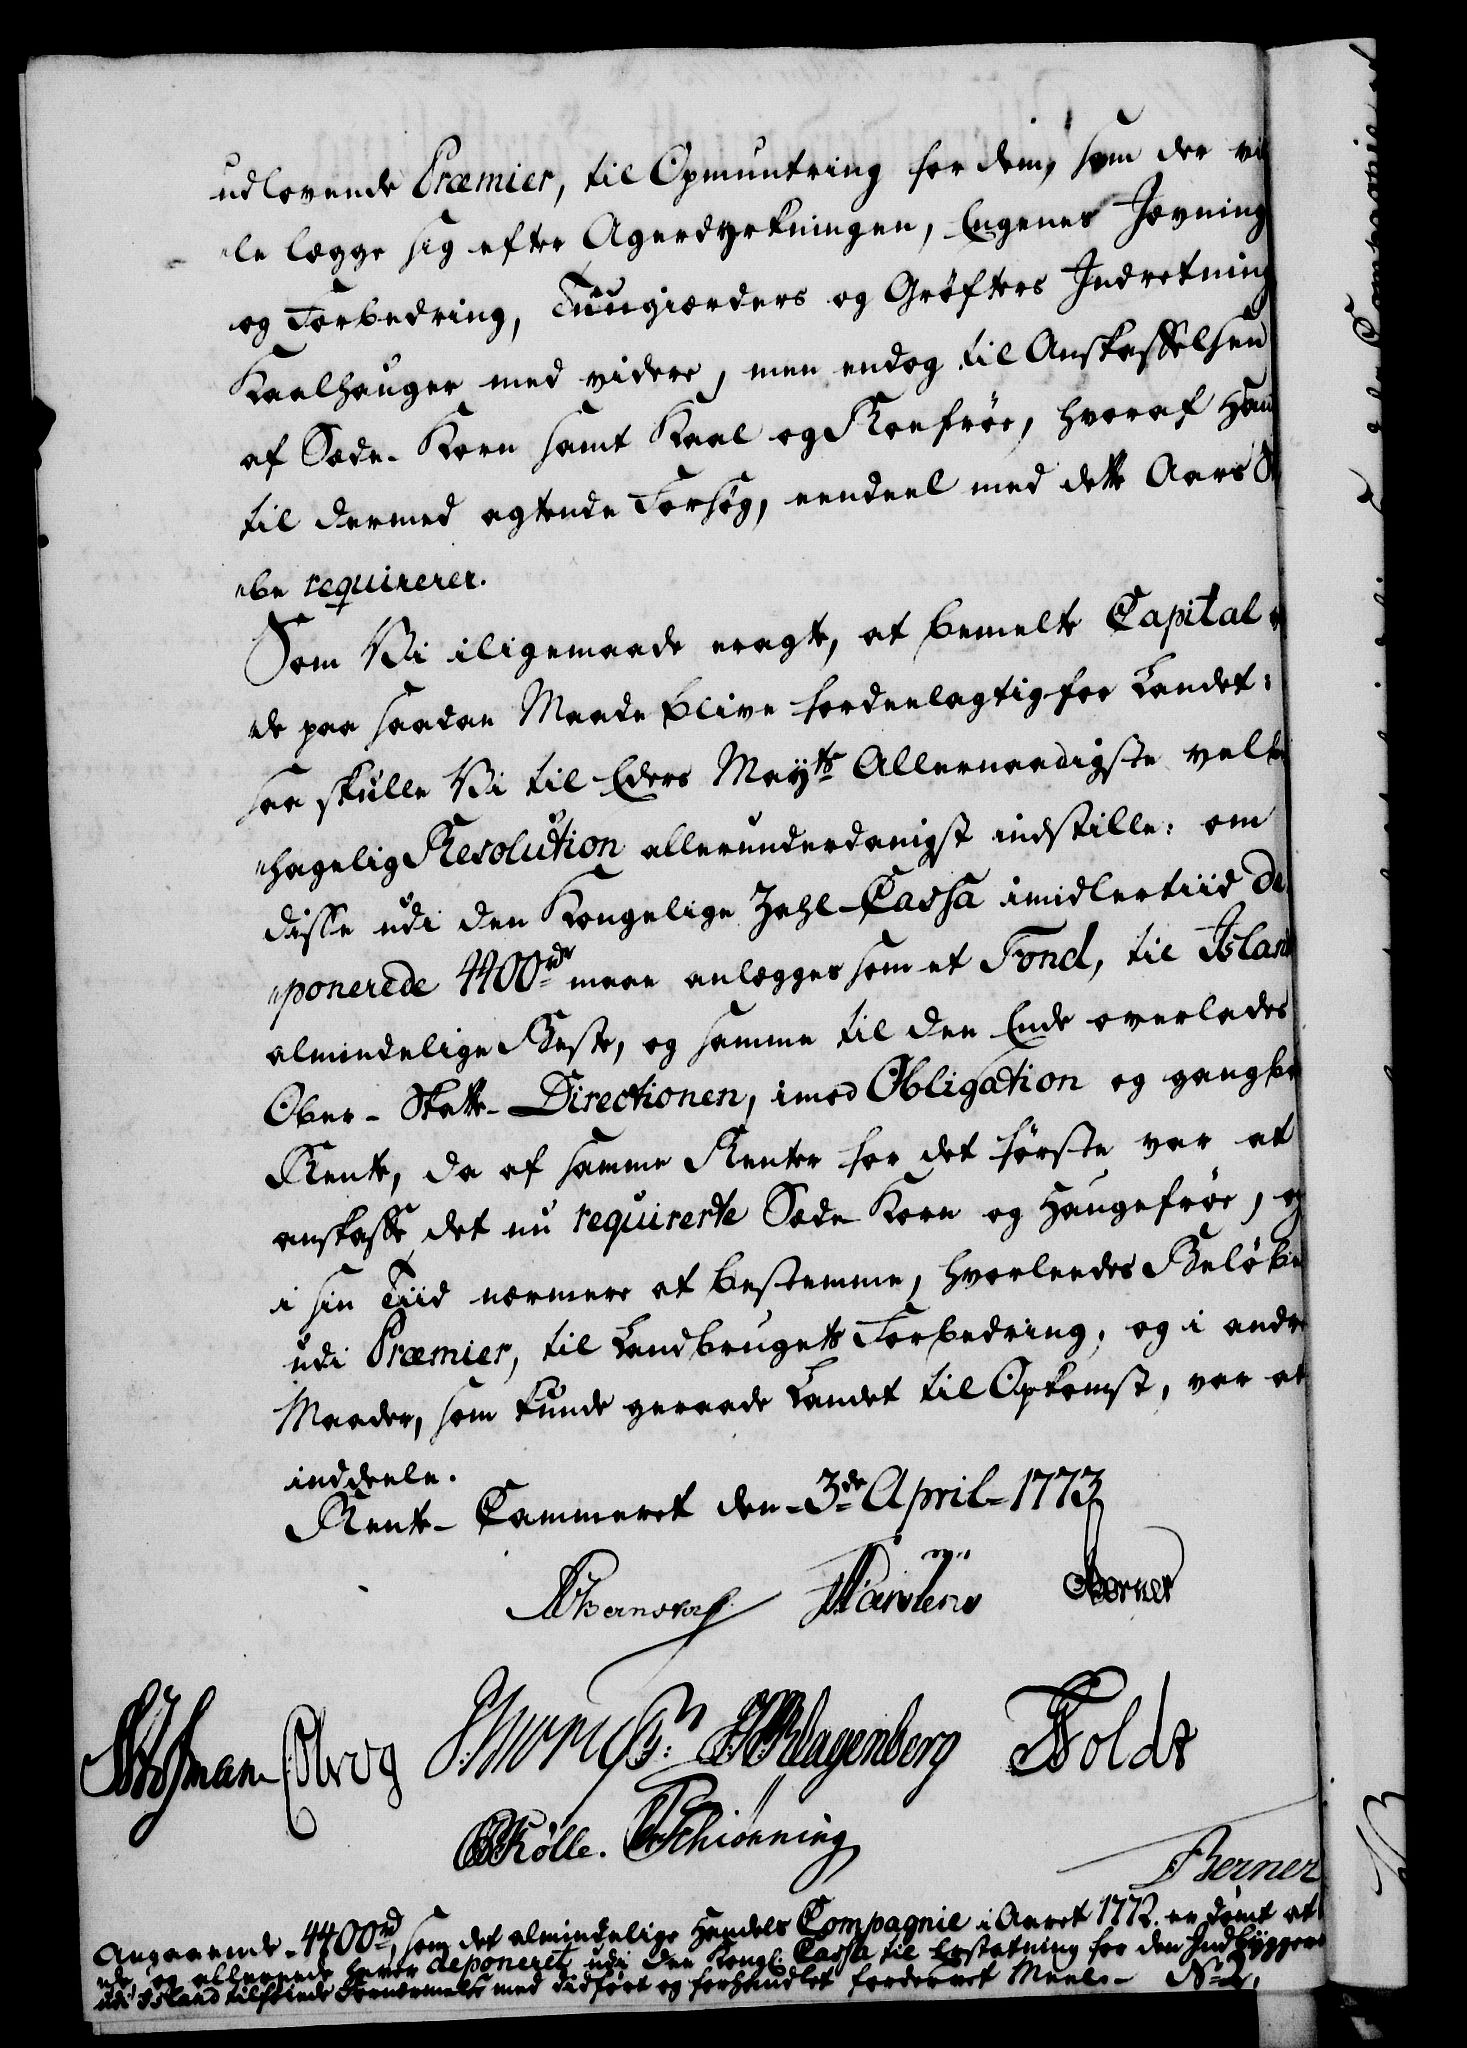 udlovende Præmier, til Opmuntring for dem, som der vil
le lægge sig efter Agerdyrkningen, Engenes Jævning
og Forbedring, Tuungiærders og Grøfters Indretning
Kaalhauger med videre, men endog til Anskaffelsen
af Sæde-Korn samt Kaal og Roefrøe, hvoraf Han
til dermed agtende Forsøg, eendeel med dette Aars
be requirerer.
Som Vi iligemaade eragte, at bemelte Capital
de paa saadan Maade blive fordeelagtig for Landet:
saa skulle Vi til Eders Mayts Allernaadigste velbe
hagelig Resolution allerunderdanigst indstille: om
disse udi den Kongelige Zahl-Cassa imidlertiid de
ponerede 4400rdr maae anlægges som et Fond, til Islands
almindelige Beste, og samme til den Ende overlades
Over-Skatte-Directionen, imod Obligation og gangbar
Rente, da af samme Renter for det første var at
anskaffe det nu requirerte Sæde Korn og Haugefrøe, og
i sin Tiid nærmere at bestemme, hvorleedes Beløbet
udi Præmier, til Landbrugets Forbedring, og i andre
Maader, som kunde geraade Landet til Opkomst, var at
inddeele.
Rente-Cammeret den 3de April 1773
ABernstorff Carstens Berner
Hofman Elvog Klagenberg Foldt
Rølle. Schiønning
Berner
Angaaende 4400rd, som det almindelige Handels Compagnie i Aaret 1772 er dømt at
og allereede haver deponeret udi den Kongl: Cassa til Erstatning for den Indbyggerne
udi Island tilføiede Fornærmelse med didført og forhandlet fordervet Meel. No 2.